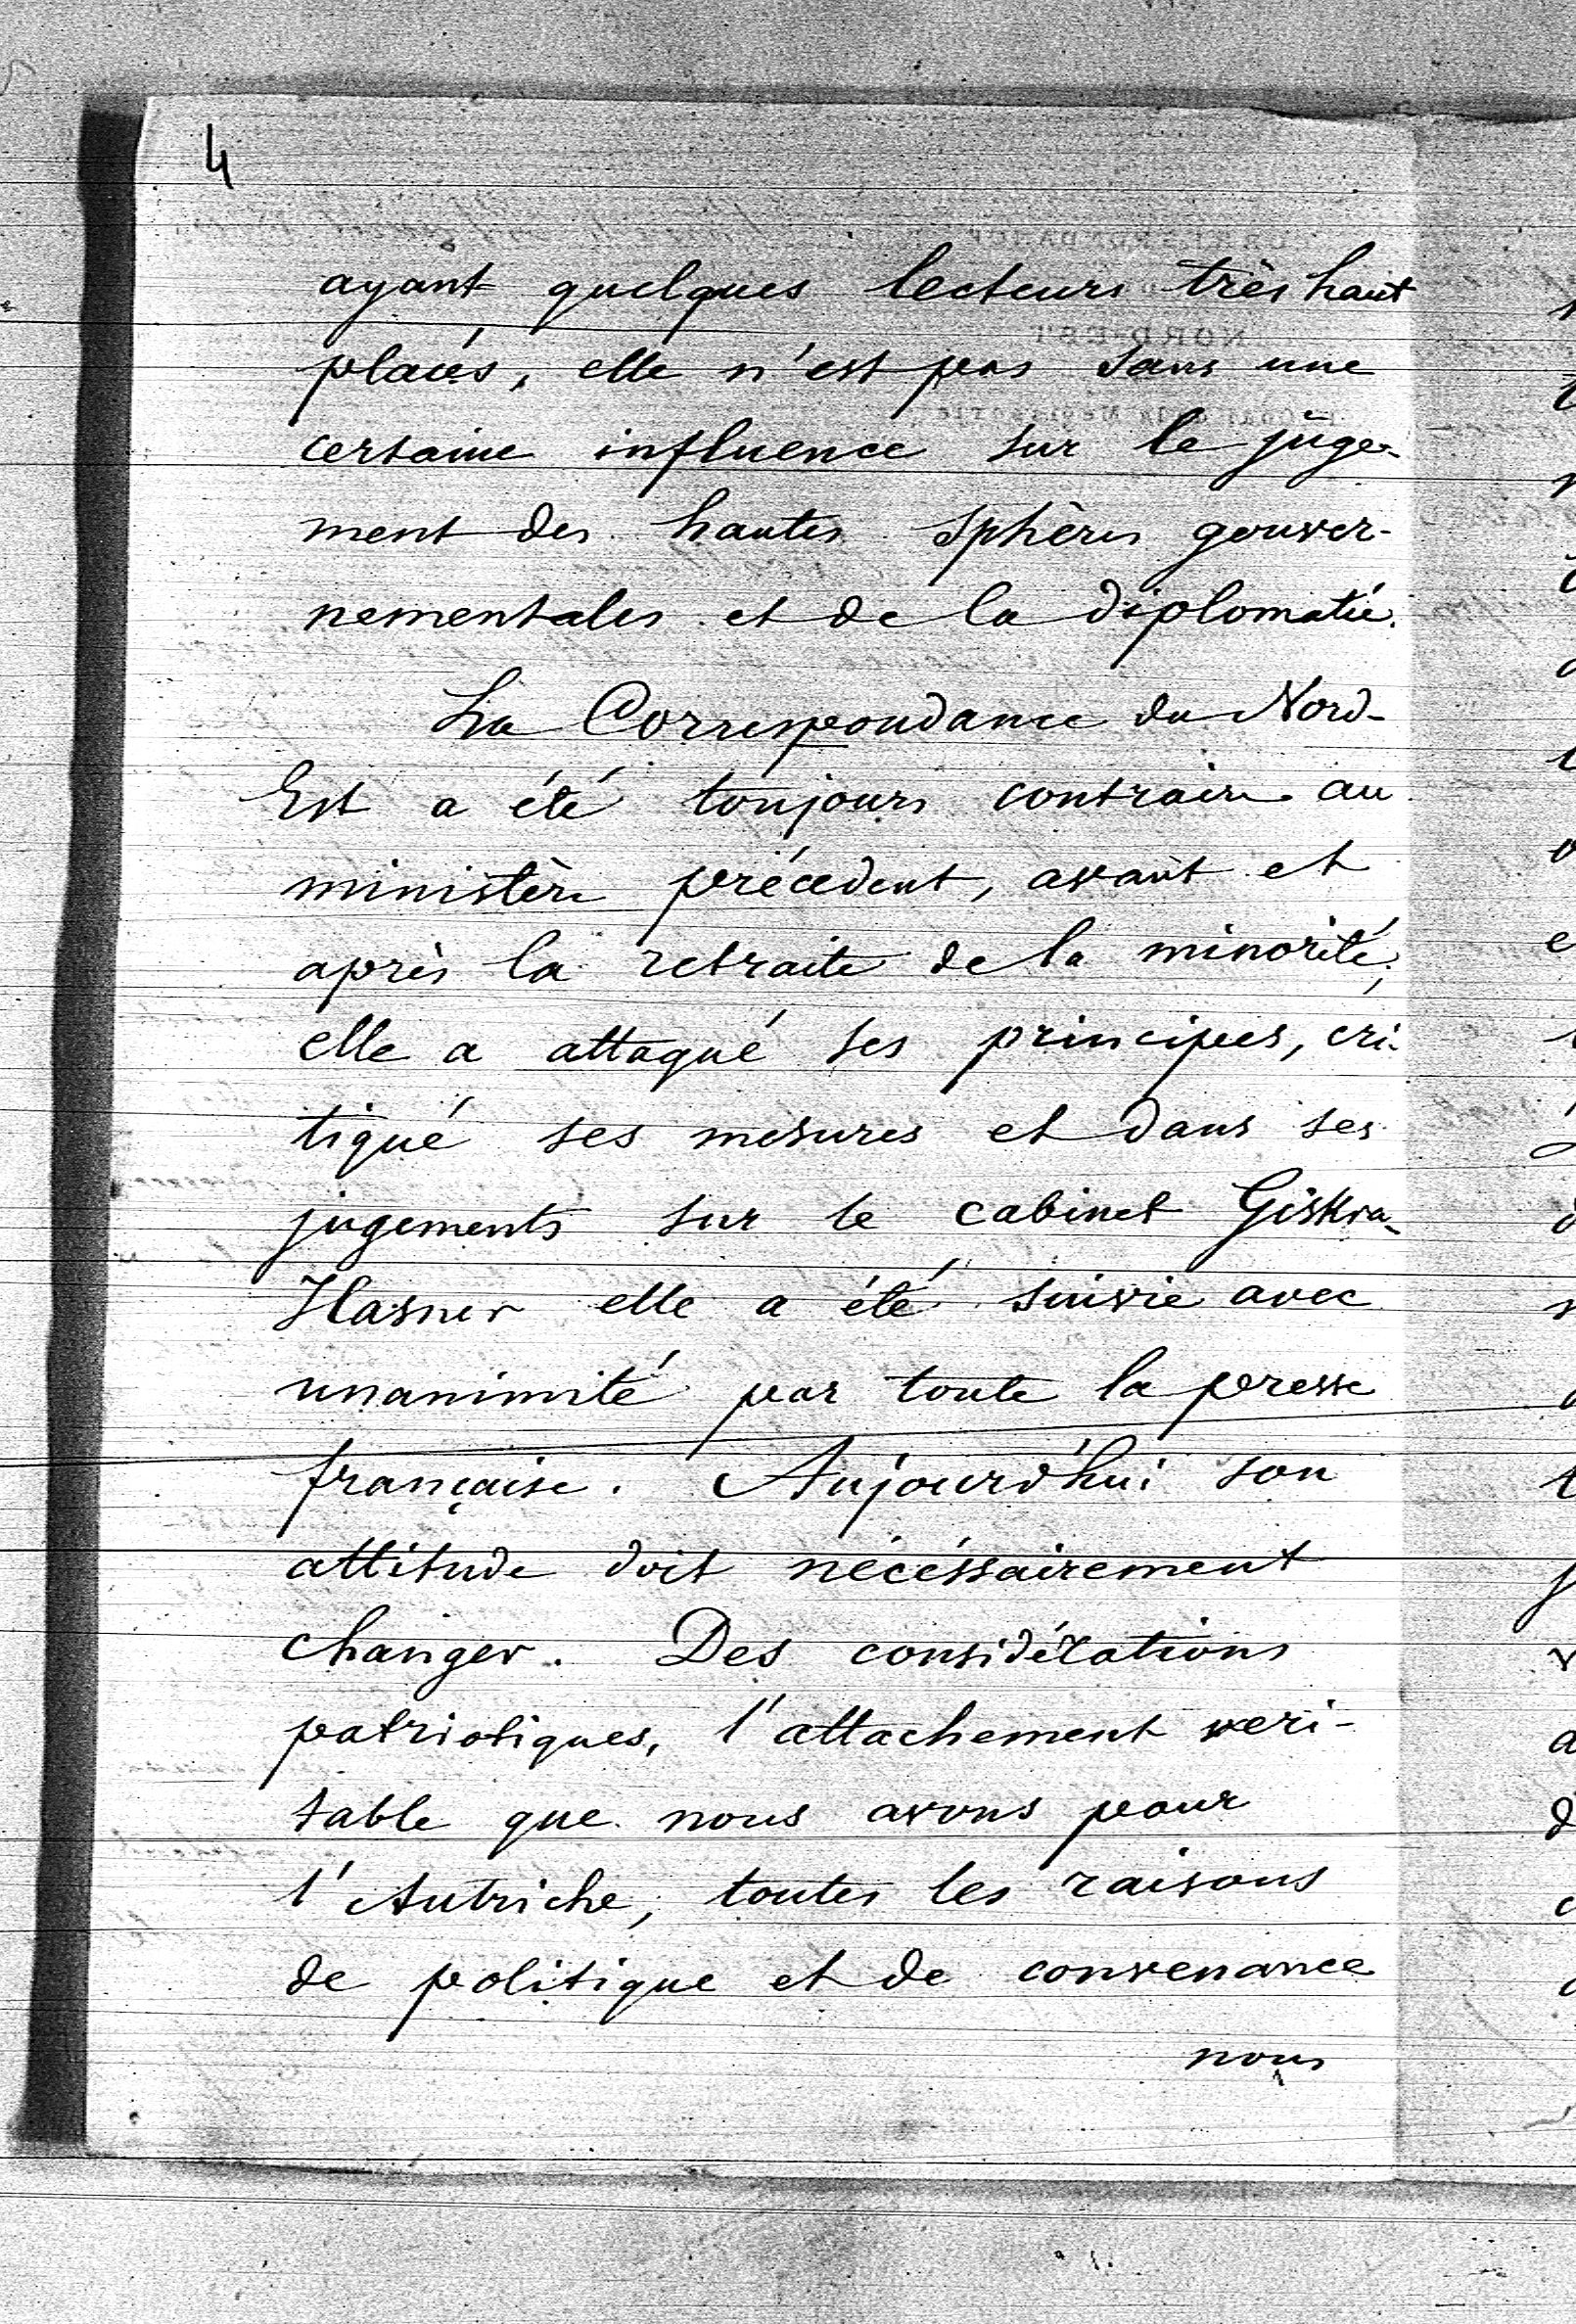 4
ayant quelques lecteurs très haut
placés, elle n'est pas sans une
certaine influence sur le juge-
ment des hautes sphères gouver-
nementales et de la diplomatie.
La Correspondance du Nord-
Est a été toujours contraire au
ministère précédent, avant et
après la retraite de la minorité;
elle a attaqué ses principes, cri-
tiqué ses mesures et dans ses
jugements sur le cabinet Giskra-
Hasner elle a été suivie avec
unanimité par toute la presse
française. Aujourd'hui son
attitude doit nécéssairement
changer. Des considérations
patriotiques, l'attachement veri-
table que nous avons pour
l'Autriche, toutes les raisons
de politique et de convenance
nous